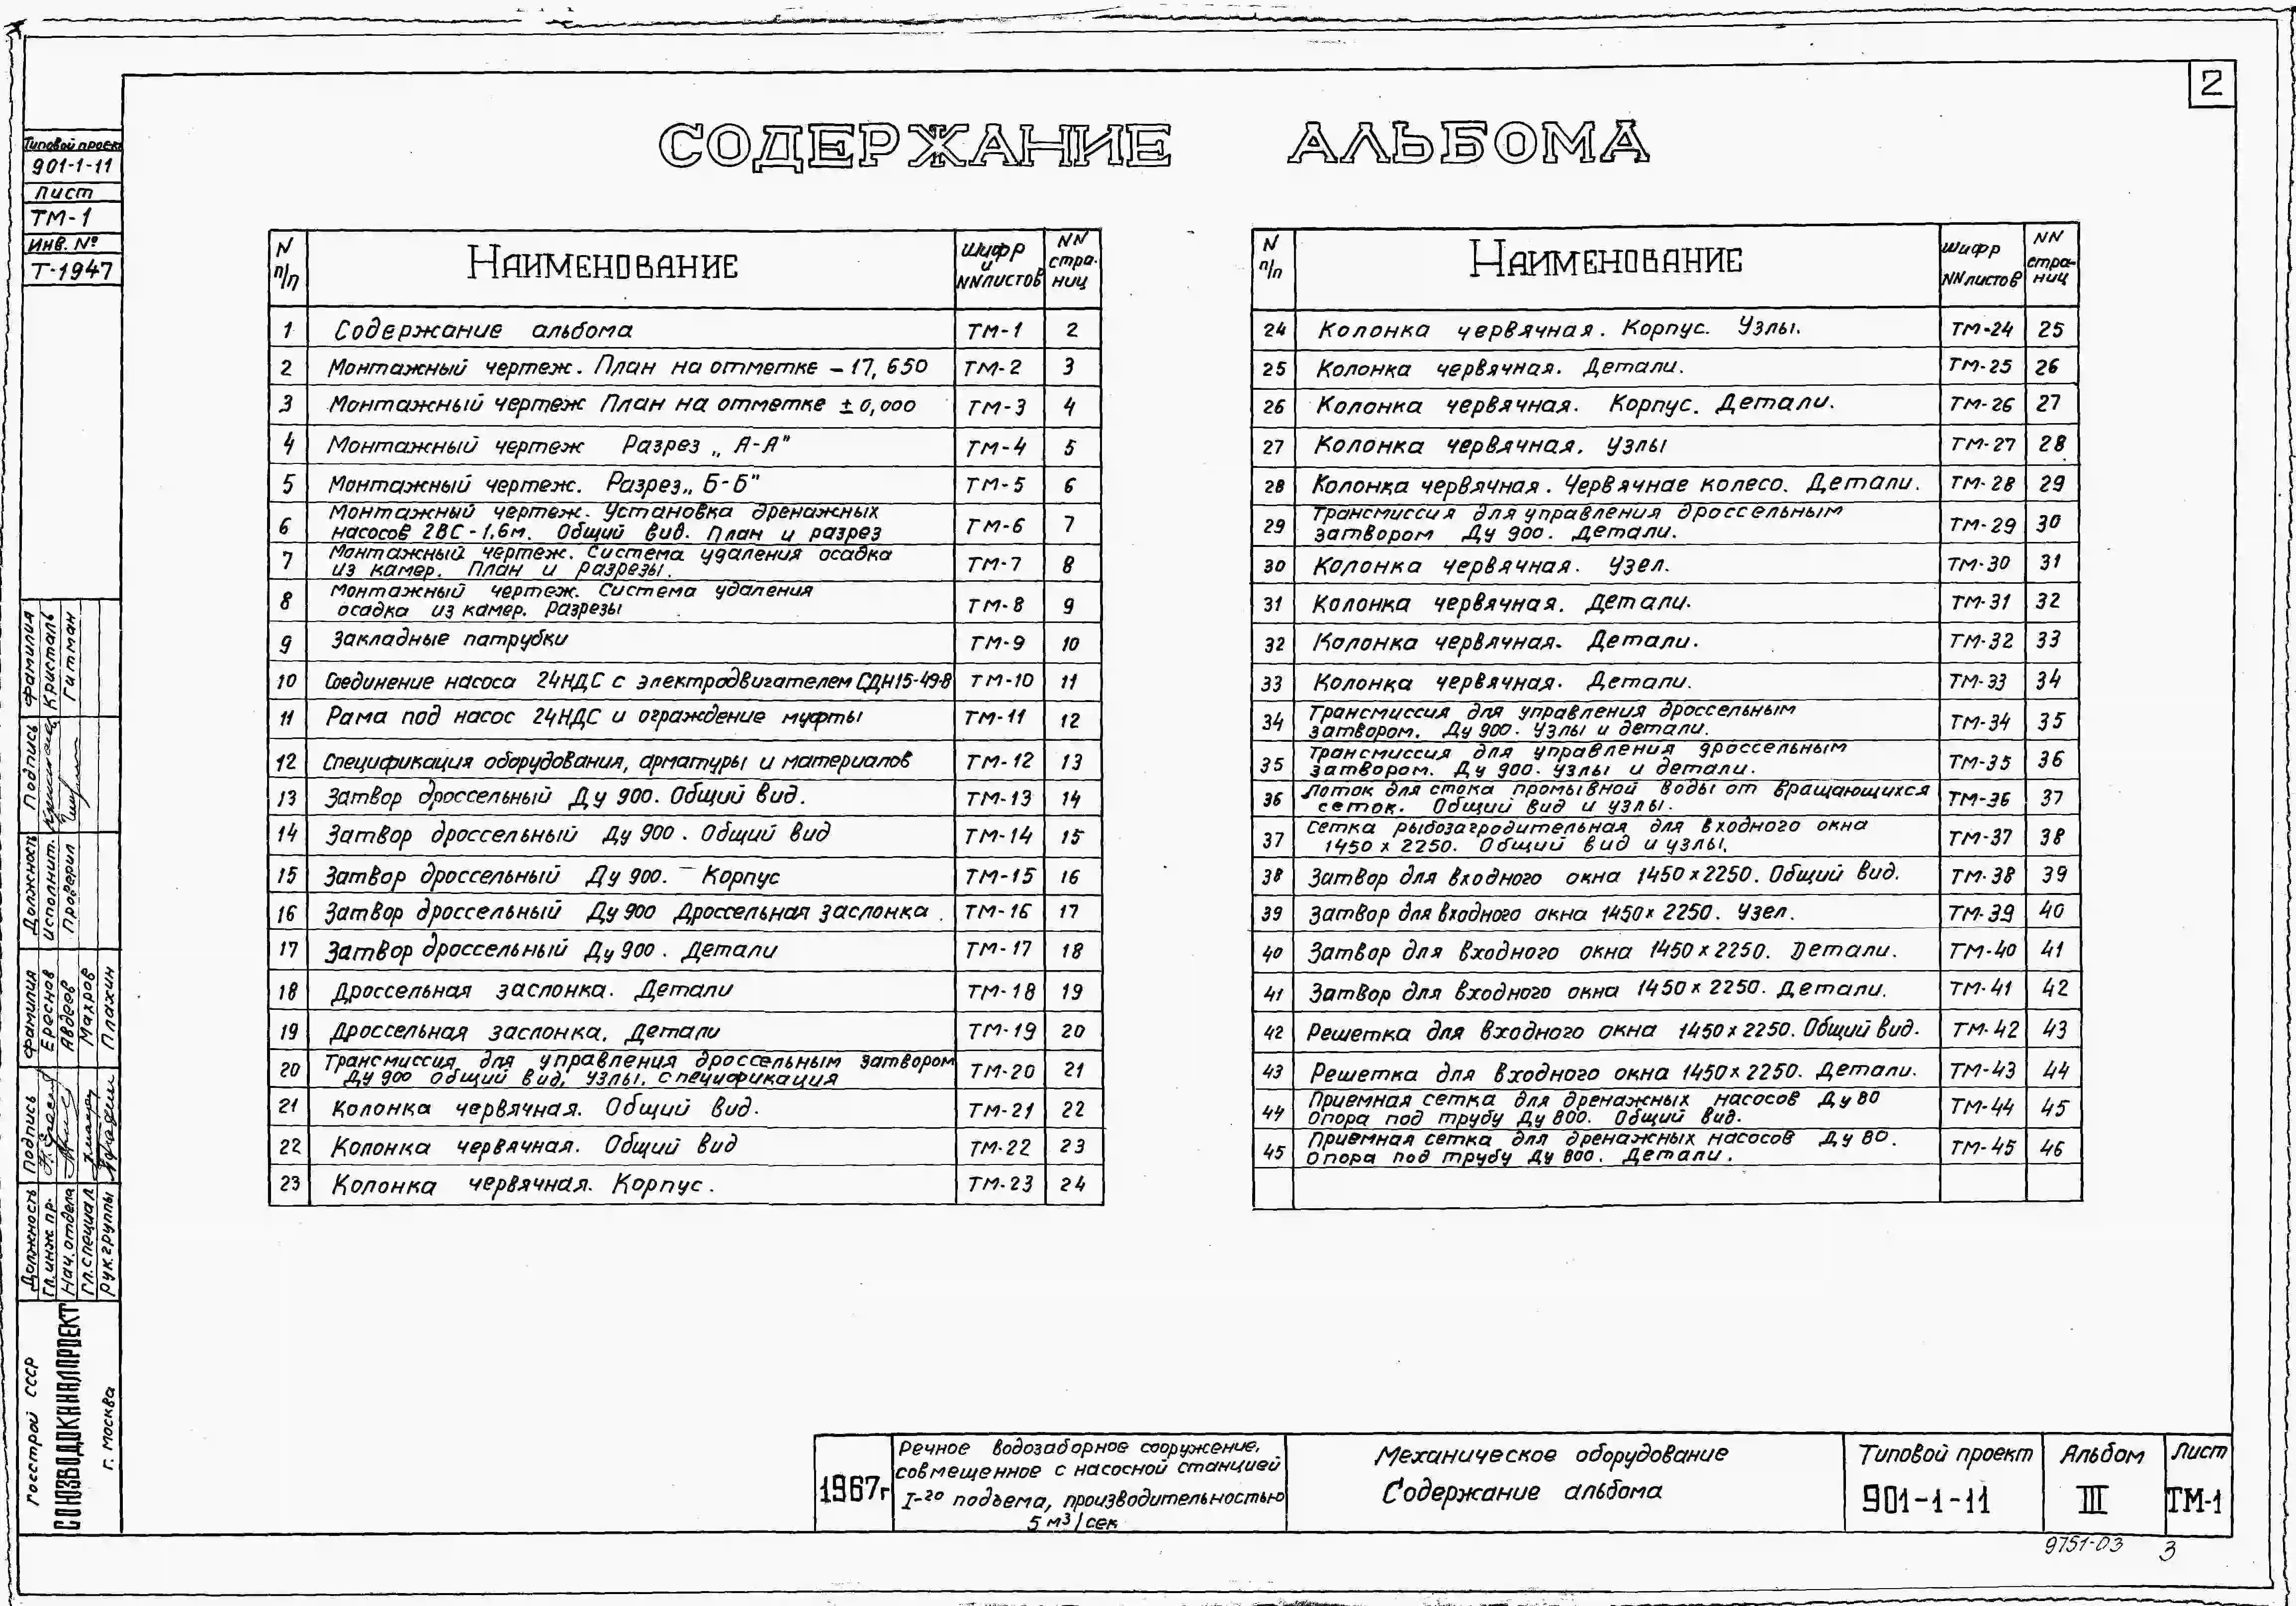 2
СОДЕРЖАНИЕ АЛЬБОМА
Типовой проект
901-1-11
Лист
ТМ-1
Инв. №
Т-1947
N п/п Наименование Шифр и NN листов NN страниц
1 Содержание альбома ТМ-1 2
2 Монтажный чертеж. План на отметке -17,650 ТМ-2 3
3 Монтажный чертеж План на отметке ±0,000 ТМ-3 4
4 Монтажный чертеж Разрез „А-А" ТМ-4 5
5 Монтажный чертеж. Разрез „Б-Б" ТМ-5 6
6 Монтажный чертеж. Установка дренажных
насосов 2ВС-1,6м. Общий вид. План и разрез ТМ-6 7
7 Монтажный чертеж. Система удаления осадка
из камер. План и разрезы. ТМ-7 8
8 Монтажный чертеж. Система удаления
осадка из камер. Разрезы ТМ-8 9
9 Закладные патрубки ТМ-9 10
10 Соединение насоса 24НДС с электродвигателем СДН15-49-8 ТМ-10 11
11 Рама под насос 24НДС и ограждение муфты ТМ-11 12
12 Спецификация оборудования, арматуры и материалов ТМ-12 13
13 Затвор дроссельный Ду 900. Общий вид. ТМ-13 14
14 Затвор дроссельный Ду 900. Общий вид ТМ-14 15
15 Затвор дроссельный Ду 900. Корпус ТМ-15 16
16 Затвор дроссельный Ду 900 Дроссельная заслонка. ТМ-16 17
17 Затвор дроссельный Ду 900. Детали ТМ-17 18
18 Дроссельная заслонка. Детали ТМ-18 19
19 Дроссельная заслонка. Детали ТМ-19 20
20 Трансмиссия для управления дроссельным затвором
Ду 900 общий вид, узлы, спецификация ТМ-20 21
21 Колонка червячная. Общий вид. ТМ-21 22
22 Колонка червячная. Общий вид ТМ-22 23
23 Колонка червячная. Корпус. ТМ-23 24
N п/п Наименование Шифр NN листов NN страниц
24 Колонка червячная. Корпус. Узлы. ТМ-24 25
25 Колонка червячная. Детали. ТМ-25 26
26 Колонка червячная. Корпус. Детали. ТМ-26 27
27 Колонка червячная. Узлы ТМ-27 28
28 Колонка червячная. Червячнае колесо. Детали. ТМ-28 29
29 Трансмиссия для управления дроссельным
затвором Ду 900. Детали. ТМ-29 30
30 Колонка червячная. Узел. ТМ-30 31
31 Колонка червячная. Детали. ТМ-31 32
32 Колонка червячная. Детали. ТМ-32 33
33 Колонка червячная. Детали. ТМ-33 34
34 Трансмиссия для управления дроссельным
затвором. Ду 900. Узлы и детали. ТМ-34 35
35 Трансмиссия для управления дроссельным
затвором. Ду 900. Узлы и детали. ТМ-35 36
36 Лоток для стока промывной воды от вращающихся
сеток. Общий вид и узлы. ТМ-36 37
37 Сетка рыбозагродительная для входного окна
1450 х 2250. Общий вид и узлы. ТМ-37 38
38 Затвор для входного окна 1450х2250. Общий вид. ТМ-38 39
39 Затвор для входного окна 1450х2250. Узел. ТМ-39 40
40 Затвор для входного окна 1450х2250. Детали. ТМ-40 41
41 Затвор для входного окна 1450х2250. Детали. ТМ-41 42
42 Решетка для входного окна 1450х2250. Общий вид. ТМ-42 43
43 Решетка для входного окна 1450х2250. Детали. ТМ-43 44
44 Приемная сетка для дренажных насосов Ду 80
Опора под трубу Ду 800. Общий вид. ТМ-44 45
45 Приемная сетка для дренажных насосов Ду 80.
Опора под трубу Ду 800. Детали. ТМ-45 46
Должность Подпись Фамилия
Исполнит. Кристаль
Проверил Гитман
Должность Подпись Фамилия
Гл.инж пр. Ереснов
Нач.отдела Авдеев
Гл.специал Махров
Рук.группы Плахин
Госстрой СССР
СОЮЗВОДОКАНАЛПРОЕКТ
г. Москва
1967г
Речное водозаборное сооружение,
совмещенное с насосной станцией
I-го подъема, производительностью
5 м³/сек
Механическое оборудование
Содержание альбома
Типовой проект
901-1-11
Альбом
III
Лист
ТМ-1
9751-03 3